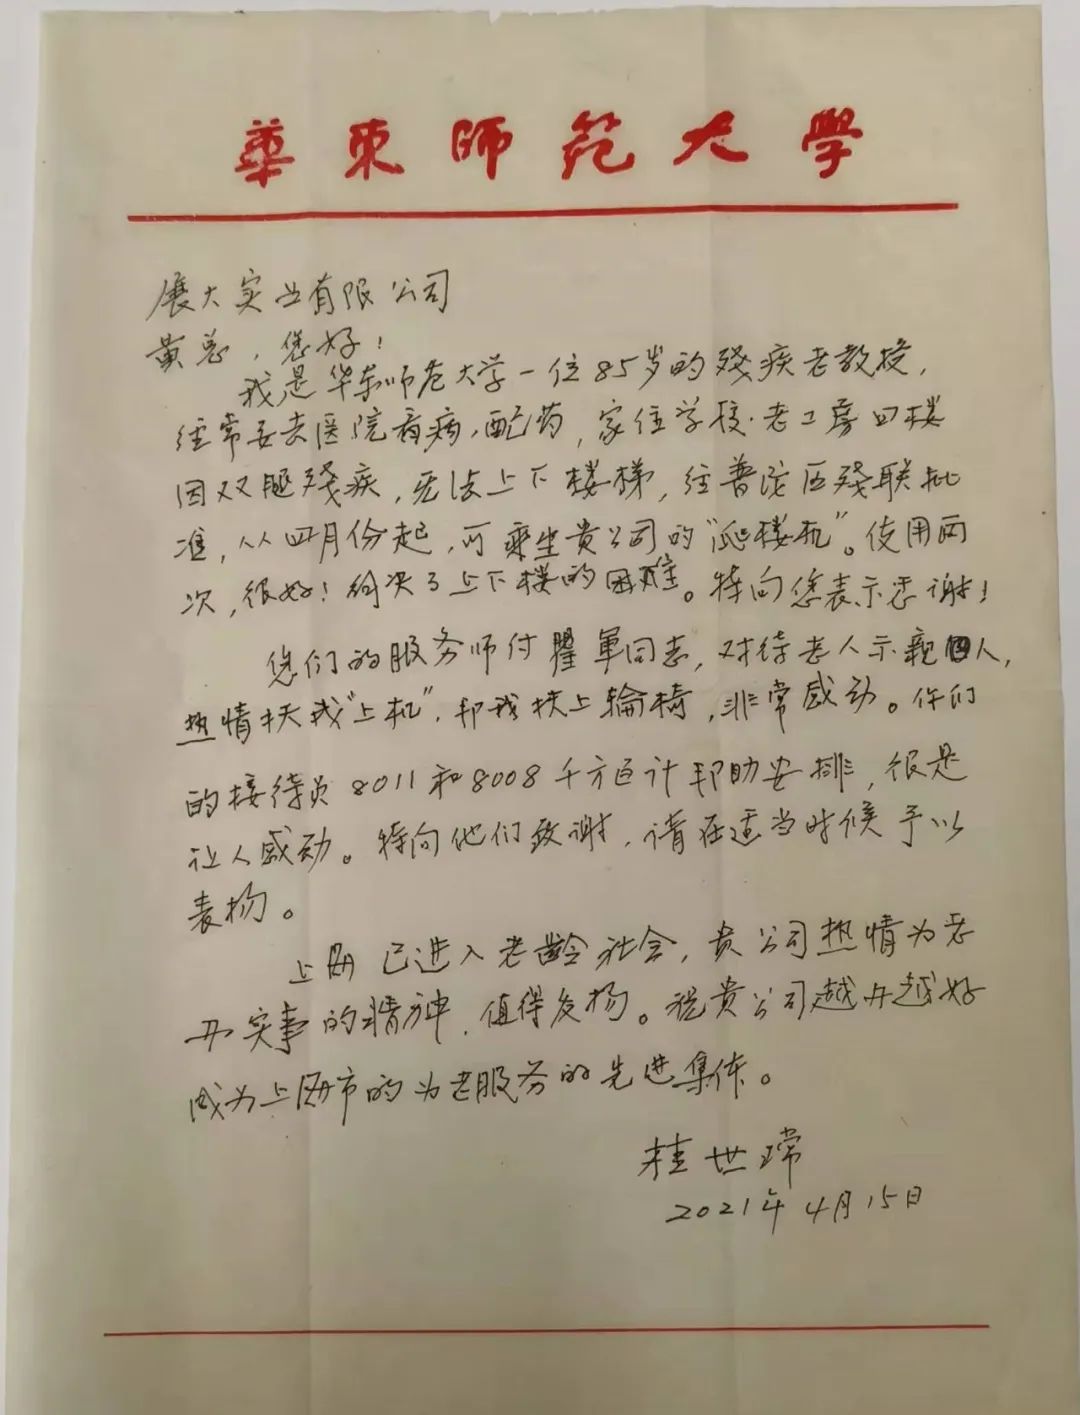 華東師范大學
展大实业有限公司
黄总，您好！
我是华东师范大学一位85岁的残疾老教授，
经常要去医院看病，配药，家住学校老工房四楼
因双腿残疾，无法上下楼梯，经普陀区残联批
准，从四月份起，可乘坐贵公司的“爬楼机”。使用两
次，很好！解决了上下楼的困难。特向您表示感谢！
您们的服务师付瞿军同志，对待老人示亲人，
热情扶我“上机”，帮我扶上輪椅，非常感动。你们
的接待员8011和8008千方百计帮助安排，很是
让人感动。特向他们致谢，请在适当时候予以
表扬。
上海已进入老龄社会，贵公司热情为老
办实事的精神，值得发扬。祝贵公司越办越好
成为上海市的为老服务的先进集体。
桂世
2021年4月15日